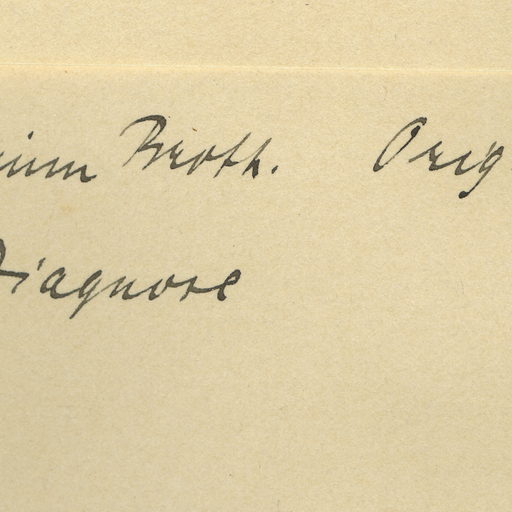 ium Broth. Orig
Diagnose